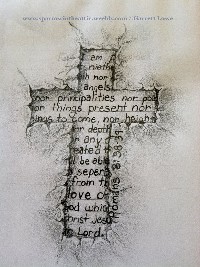 I am
nieth
th nor
angels
nor principalities nor pow
or things present nor
ings to come, nor height
or depth
or any
reated
ll be able
separa
from th
love o
God which
hrist Jesu
Lord.
Romans 8:38-39